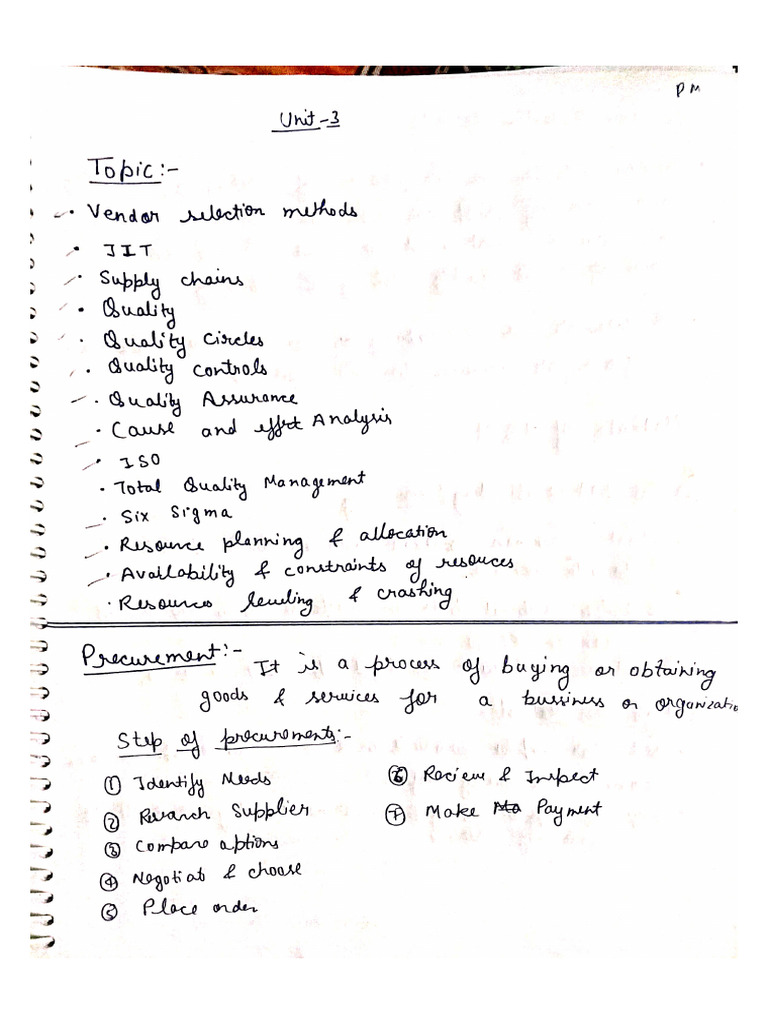 PM
Unit-3
Topic:-
• Vendor selection methods
• JIT
• Supply chains
• Quality
• Quality Circles
• Quality controls
• Quality Assurance
• Cause and effect Analysis
• ISO
• Total Quality Management
• Six Sigma
• Resource planning & allocation
• Availability & constraints of resouces
• Resources leveling & crashing
Precurement:- It is a process of buying or obtaining
goods & services for a bussiness or organizatio
Step of precurements:-
① Identify Needs
② Reserch Supplier
③ Compare options
④ Negotiat & choose
⑤ Place order
⑥ Recieve & Inspect
⑦ Make Payment